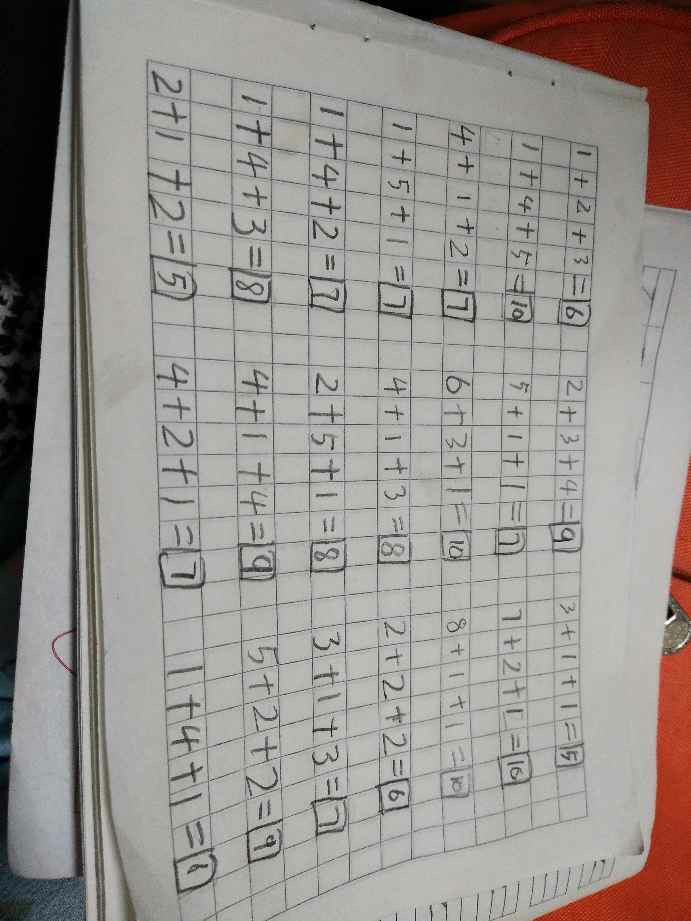 1+2+3=6 2+3+4=9 3+1+1=5
1+4+5=10 5+1+1=7 7+2+1=10
4+1+2=7 6+3+1=10 8+1+1=10
1+5+1=7 4+1+3=8 2+2+2=6
1+4+2=7 2+5+1=8 3+1+3=7
1+4+3=8 4+1+4=9 5+2+2=9
2+1+2=5 4+2+1=7 1+4+1=6